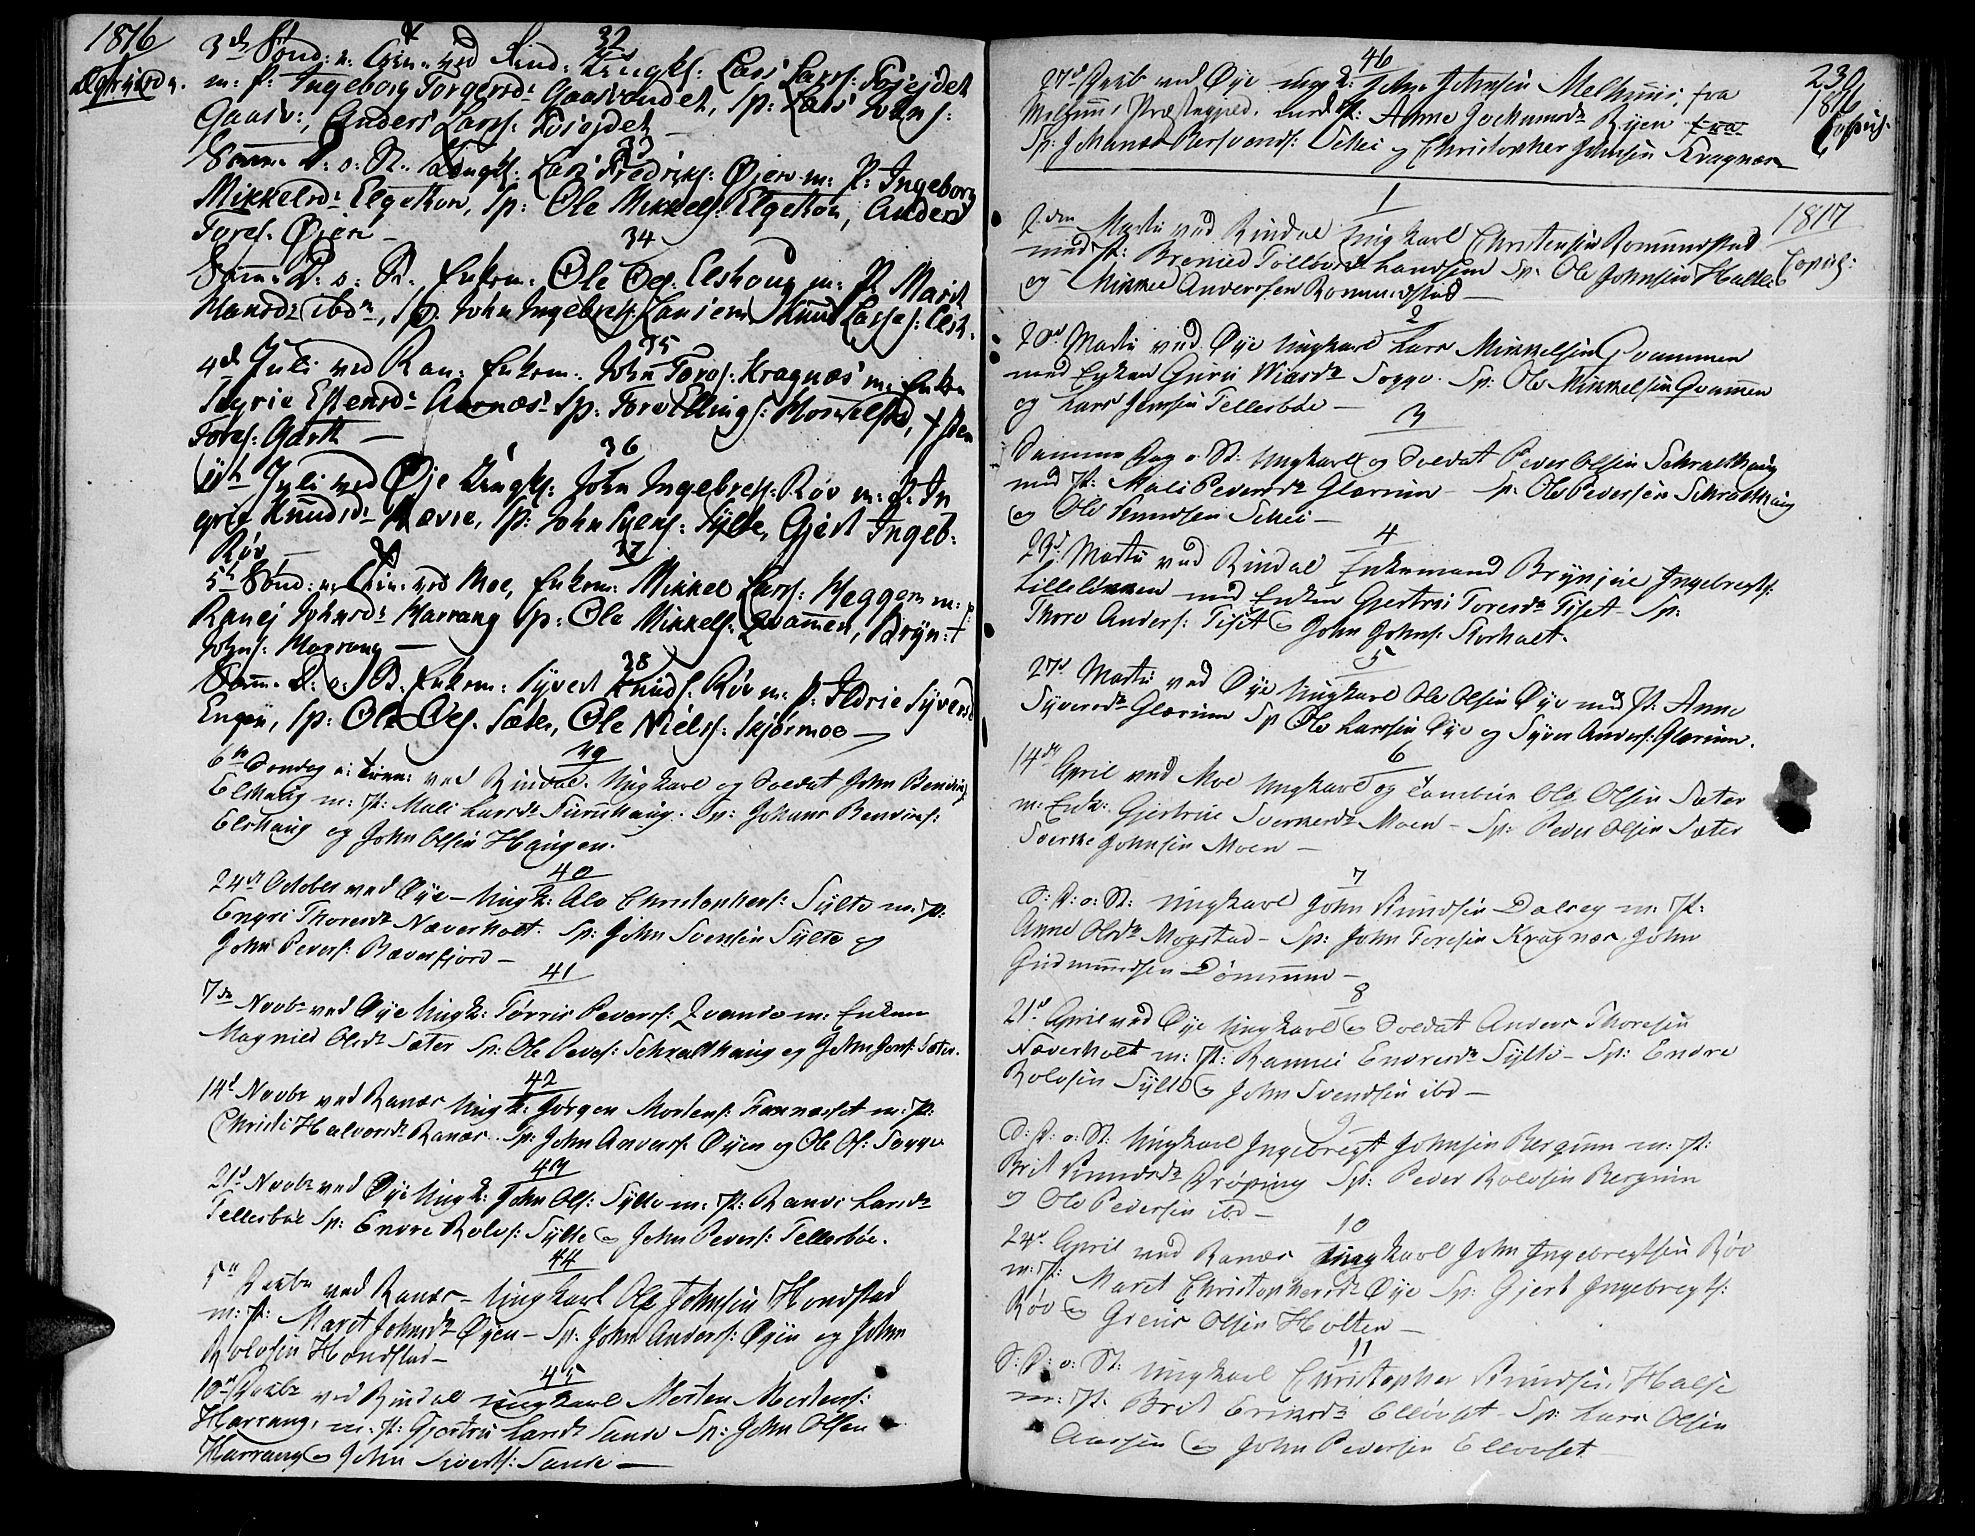 1816
32
3d Sønd: e. Trin. ved Rind: Ungk: Lars Larss: Fosejdet
m: P: Ingeborg Torgersd: Gaasvandet, Sp: Lars Johns:
Gaasv:, Anders Larss: Fosejdet
33
Samm. D. o. St. Ungk. Lars Fredriks: Øjen m: P: Ingeborg
Mikkelsd: Elgethon, Sp: Ole Mikkels: Elgethon, Anders
Tores. Øjen
34
Samm. D. o. St. Enkem. Ole Ols. Elshoug m: P. Marit
Hansd: ibdn, Sp. John Ingebrets: Knud
35
4d Juli ved Ran: Enkem. John Tores: Kragnæs m: Enken
Estensd: Aarnæs Sp: Tore
Tores: Garth
36
Juli ved Øje Ungk: John Ingebrets: Røv m: P: In
Knudsd: Bævre, Sp: John Sylte, Gjert Ingeb:
Røv
37
5t Sønd: e. Trin. ved Moe, Enkem: Mikkel Larss: Heggem m: P:
Ranej Johnsd: Harrang Sp: Ole Mikkels: Qvammen, Bryn:
Johns: Harrang
38
Samm. D. o. St. Enkem. Syvert Knuds: Røv m: P: Ildrie Syvers
Engen, Sp: Ole Ols. Sæter, Ole Niels: Skjørmoe
39
6te Søndag e: Trin: ved Rindal. Ungkarl og Soldat John
Elshaug m: P: Mali Larsd: Furuhaug. Sp: Johans
Elshaug og John Olsen Haugen.
40
24d October ved Øye Ungk: Ale Christophers: Sylte m: P:
Engri Thoresd: Næverholt. Sp: John Svensen Sylte og
John Peders: Bæverfjord
41
7de Novbr ved Øye Ungk: Torris Peders: Qvande m: Enken
Magnild Olsd: Sæter Sp: Ole Peders: Schralthaug og John Jons: Sæter.
42
14d Novbr ved Ranæs Ungk: Jørgen Mortens: Fannæsset m: P:
Christi Halvorsd: Ranæs. Sp: John Anders: Øyen og Ole Ols: Sogge
43
21d Novbr ved Øye Ungk: John Ols: Sylte m: P: Randi Larsd:
Tellesbøe Sp: Endre Rolss: Sylte og John Peders: Tellesbøe.
44
5te Decbr ved Ranæs Ungkarl Ole Johnsen Hondstad
m: P: Marit Johnsd: Øyen Sp: John Anders: Øyen og John
Rolosen Hondstad
45
10de Decbr ved Rindal Ungkarl Morten Mortens:
Harrang, m: P: Gjertrui Larsd: Sande Sp: John Olsen
Harrang og John Siverts: Sande
46
27d Decb ved Øye Ungk: John Johnsen Melhuus, fra
Melhuus Præstegjeld, med P: Anne Jochumsd: Øyen
Sp: Johannes Schei og Christopher Johnsen Kragnæs
230
1816
Copul:
1
1817
Copul:
2den Martii ved Rindal Ungkarl Christensen Romundstad
med P: Brenild Tollevsd: Landsem Sp: Ole Johnsen Halle
og Mikkel Andersen Romundstad
2
20d Martii ved Øye Ungkarl Lars Mikkelsen Qvammen
med Enken Guri Sogge. Sp: Ole Mikkelsen Qvammen
og Lars Jensen Tellesbøe
3
Samme Dag o. St: Ungkarl og Soldat Peder Olsen Schralthaug
med P: Mali Pedersd: Glærum Sp: Ole Pedersen Schralthaug
og Ole Knudsen Schei
4
23d Martii ved Rindal Enkemand Brynjul Ingebregts:
Lilleløkken med Enken Gjertrui Toresd: Tiset Sp:
Thore Anders: Tiset og John Johns: Storholt.
5
27d Martii ved Øye Ungkarl Ole Olsen Øye med P: Anne
Syversd: Glærum Sp Ole Larsen Øye og Syver Anders: Glærum.
6
14de April ved Moe Ungkarl og Tambur Ole Olsen Sæter
m: Enk: Gjertrui Sverkersd: Moen Sp: Peder Olsen Sæter
Sverke Johnsen Moen
7
S: D: o: St: Ungkarl John Knudsen Dalseg m: P:
Anne Olsd: Mogstad Sp: John Toresen Kragnæs John
Gudmundsen Dønnum
8
21d April ved Øye Ungkarl og Soldat Anders Thoresen
Næverholt m: P: Rannei Endresd: Sylte Sp: Endre
Rolosen Sylte og John Svendsen ibd
9
S: D: o: St: Ungkarl Ingebregt Johnsen Bergum m: P:
Brit Knudsd: Drøping Sp: Peder Rolosen Bergum
og Ole Pedersen ibd
10
24d April ved Ranæs Ungkarl John Ingebregtsen Røv
m: P: Marit Christophersd: Øye Sp: Gjert Ingebregts:
Røv og Greius Olsen Holten
11
S: D: o: St: Ungkarl Christopher Knudsen Halse
m: P: Brit Eriksd: Ellevset Sp: Lars Olsen
og John Pedersen Ellevset